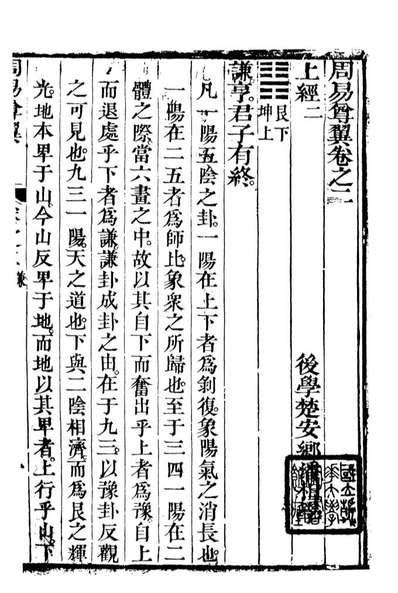 周易尊翼卷之二
上經二
後學楚安鄉
艮下
坤上
謙亨君子有終
凡一陽五陰之卦一陽在上下者為剝復象陽氣之消長也
一陽在二五者為師比象衆之所歸也至于三四一陽在二
體之際當六畫之中故以其自下而奮出乎上者為豫自上
而退處乎下者為謙謙卦成卦之由在于九三以豫卦反觀
之可見也九三一陽天之道也下與二陰相濟而為艮之輝
光地本畀于山今山反畀于地而地以其畀者上行乎山下
周易尊翼
謙